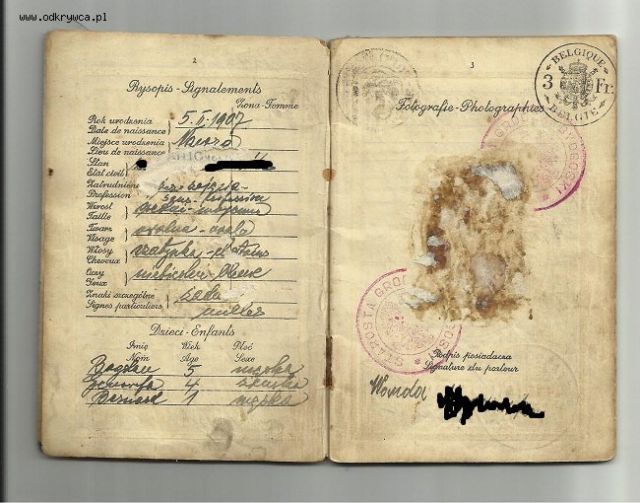 www.odkrywca.pl
2
Rysopis - Signalements
Żona - Femme
Rok urodzenia
Date de naissance
5. II. 1907
Miejsce urodzenia
Lieu de naissance
Stan
Etat civil
Zatrudnienie
Profession
Wzrost
Taille
Twarz
Visage
owalna - ovale
Włosy
Cheveux
szatynka
Oczy
Yeux
niebieskie - bleue
Znaki szczególne
Signes particuliers
Dzieci - Enfants
Imię Wiek Płeć
Nom Age Sexe
Bogdan 5 męska
4 żeńska
Bernard 1 męska
3
Fotografie - Photographies
BELGIQUE
3 Fr.
BELGIË
STAROSTA GRO
Podpis posiadacza
Signature du porteur
Wanda